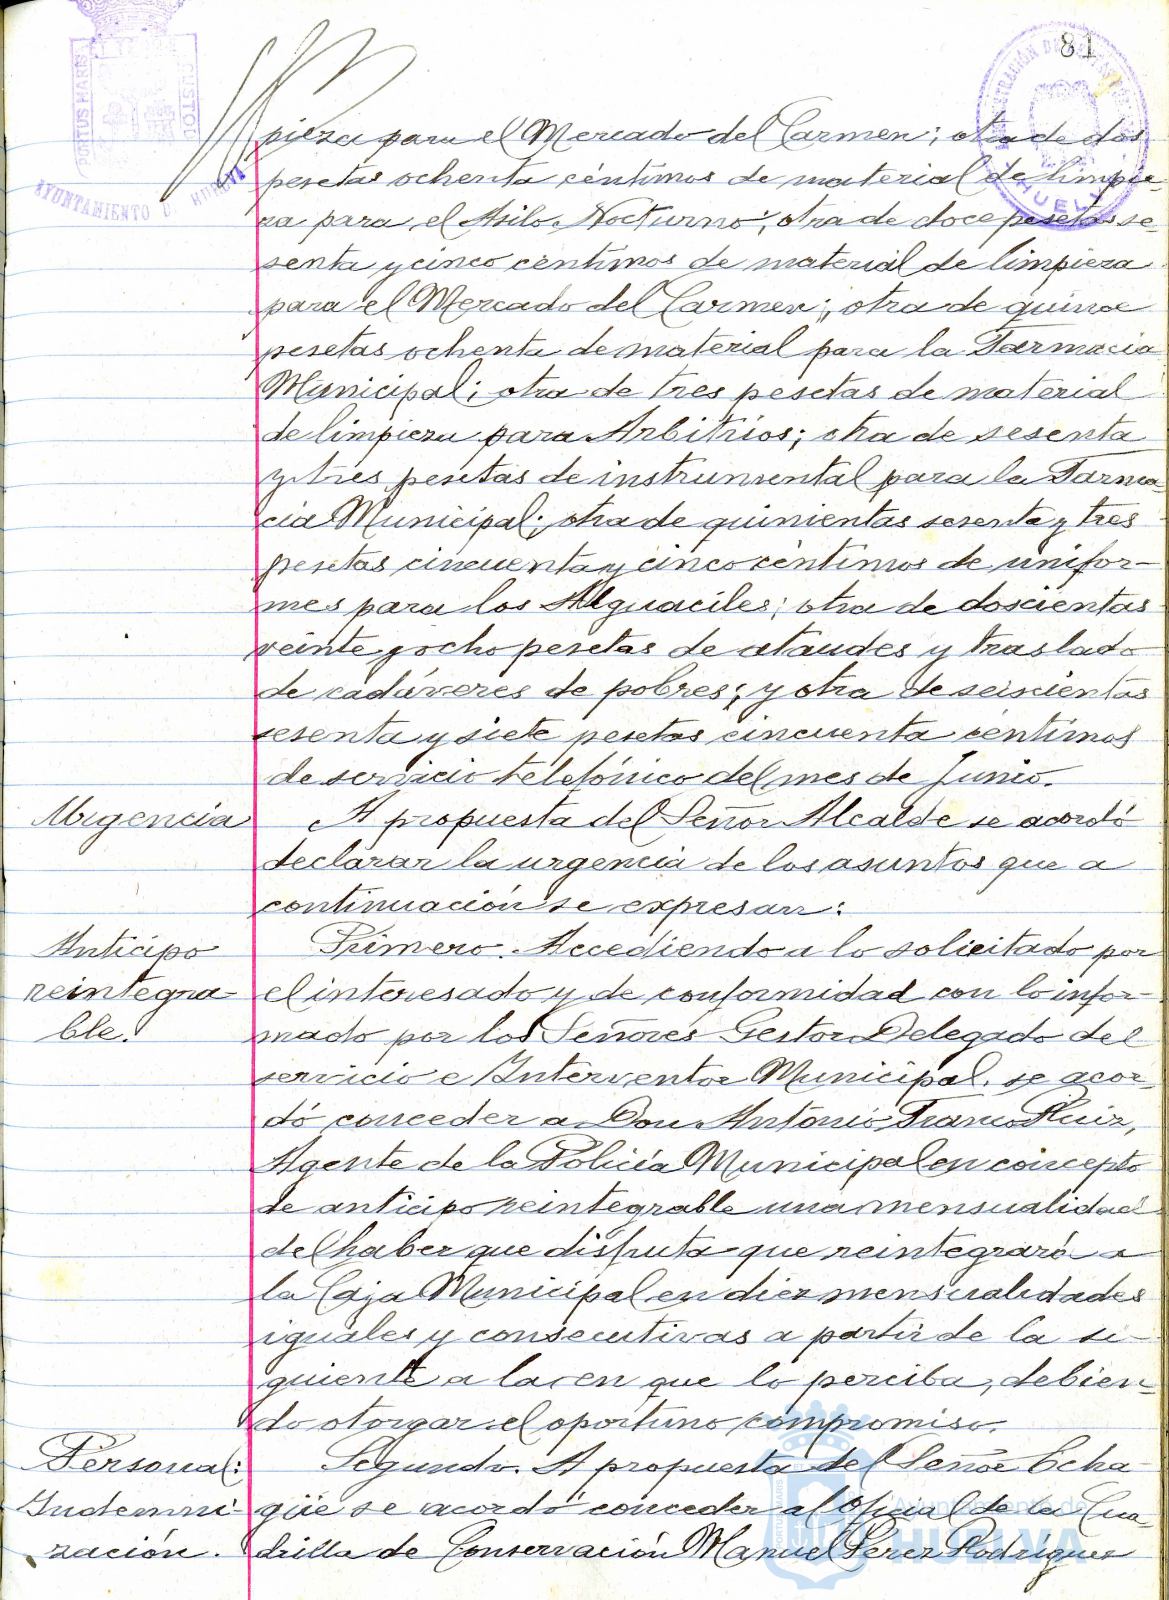 81
PORTUS MARIS
CUSTODIA
AYUNTAMIENTO DE HUELVA
HUELVA
pieza para el Mercado del Carmen; otra de dos
pesetas ochenta céntimos de material de limpie-
za para el Asilo Nocturno; otra de doce pesetas se-
senta y cinco céntimos de material de limpieza
para el Mercado del Carmen; otra de quince
pesetas ochenta de material para la Farmacia
Municipal; otra de tres pesetas de material
de limpieza para Arbitrios; otra de sesenta
y tres pesetas de instrumental para la Farma-
cia Municipal; otra de quinientas sesenta y tres
pesetas cincuenta y cinco céntimos de unifor-
mes para los Alguaciles; otra de doscientas
veinte y ocho pesetas de ataudes y traslado
de cadáveres de pobres; y otra de seiscientas
sesenta y siete pesetas cincuenta céntimos
de servicio telefónico del mes de Junio.
Urgencia
A propuesta del Señor Alcalde se acordó
declarar la urgencia de los asuntos que a
continuación se expresan:
Anticipo
reintegra-
ble.
Primero. Accediendo a lo solicitado por
el interesado y de conformidad con lo infor-
mado por los Señores Gestor Delegado del
servicio e Interventor Municipal, se acor-
dó conceder a Don Antonio Franco Ruiz,
Agente de la Policía Municipal en concepto
de anticipo reintegrable una mensualidad
del haber que disfruta que reintegrará a
la Caja Municipal en diez mensualidades
iguales y consecutivas a partir de la si-
guiente a la en que lo perciba, debien-
do otorgar el oportuno compromiso.
Personal:
Indemni-
zación.
Segundo. A propuesta del Señor Echa-
güe se acordó conceder al Oficial de la Cua-
drilla de Conservación Manuel Pérez Rodríguez
Ayuntamiento de
HUELVA